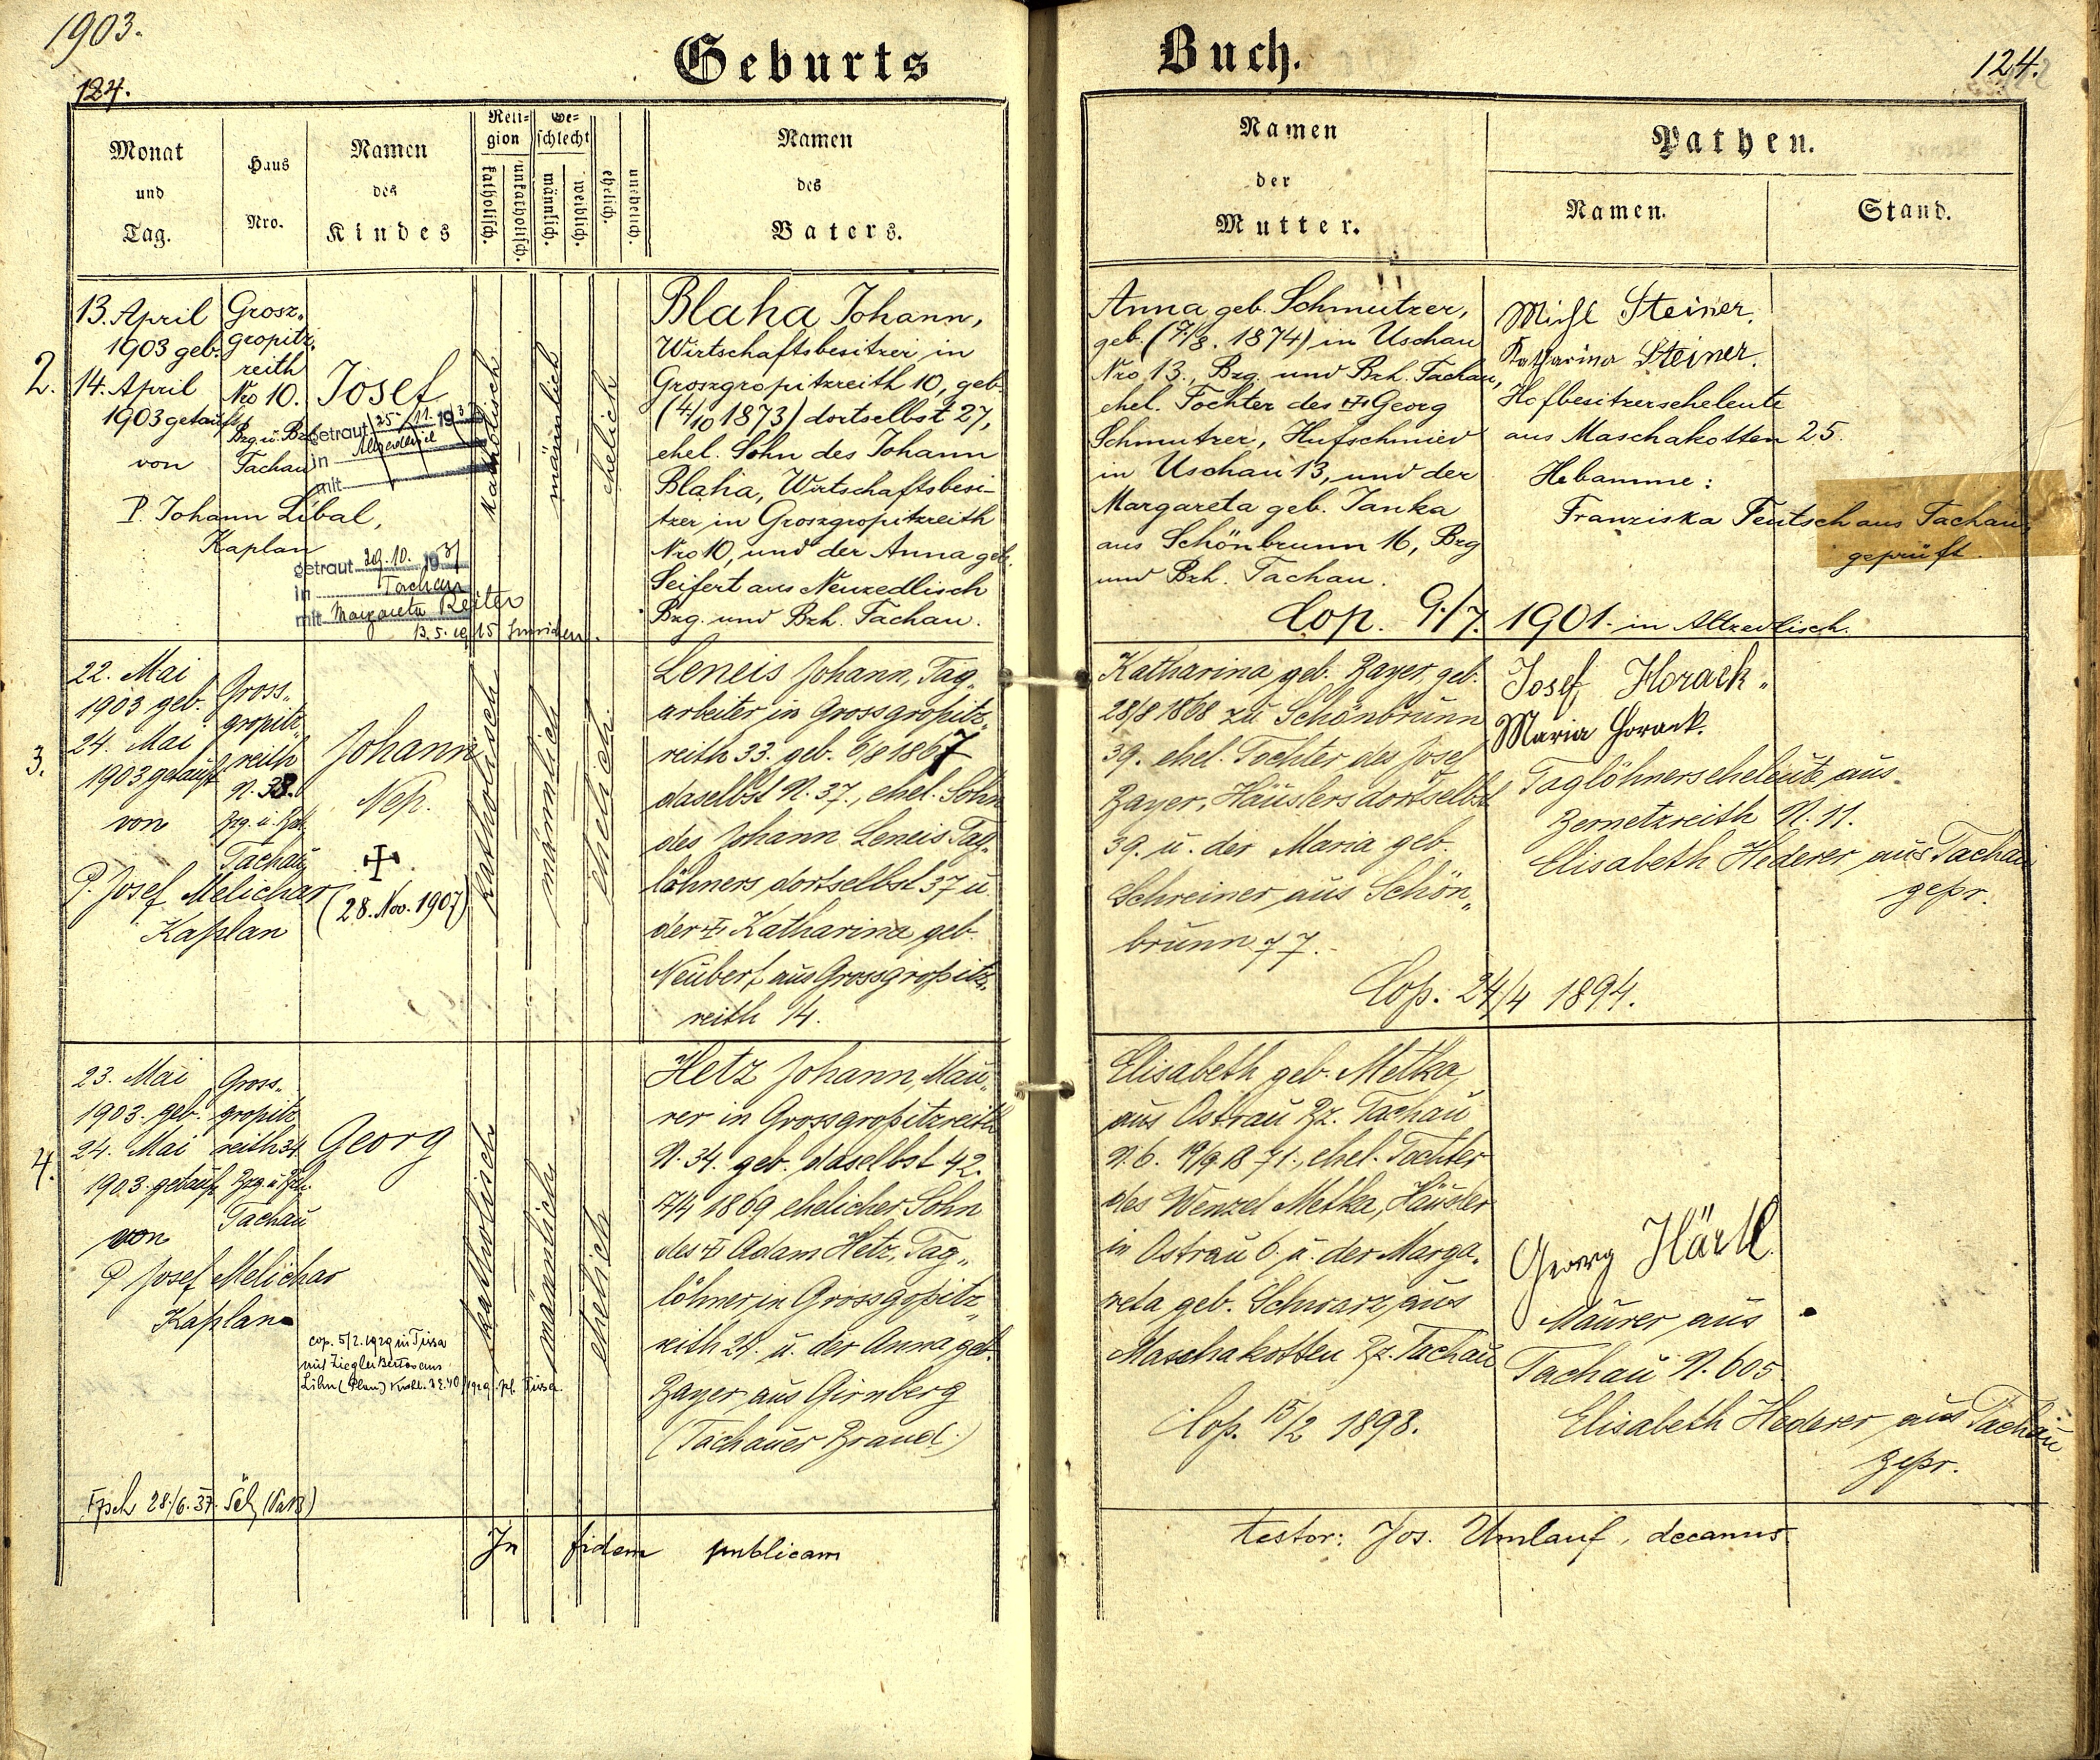 1903.
124.
Geburts
Buch.
124.
Monat
und
Tag.
Haus
Nro.
Namen
des
Kindes
Reli-
gion
katholisch.
unkatholisch.
Ge-
schlecht
männlich.
weiblich.
ehelich.
unehelich.
Namen
des
Vaters.
Namen
der
Mutter.
Pathen.
Namen.
Stand.
2.
13. April
1903 geb.
14. April
1903 getauft
von
P. Johann Libal,
Kaplan
Grosz-
gropitz-
reith
Nro 10.
Bzg. u. Bzh.
Tachau
Josef
getraut 25/11. 193
in
mit
getraut 29.10. 1931
in Tachau
mit Margareta Reiter
13.5.1915
katholisch
männlich
ehelich
Blaha Johann,
Wirtschaftsbesitzer in
Groszgropitzreith 10, geb.
(4/10 1873) dortselbst 27,
ehel. Sohn des Johann
Blaha, Wirtschaftsbesi-
tzer in Groszgropitzreith
Nro 10, und der Anna geb.
Seifert aus Neuzedlisch
Bzg. und Bzh. Tachau.
Anna geb. Schmutzer,
geb. (7/8. 1874) in Uschau
Nro 13., Bzg. und Bzh. Tachau,
ehel. Tochter des ☩ Georg
Schmutzer, Hufschmied
in Uschau 13, und der
Margareta geb. Janka
aus Schönbrunn 16, Bzg
und Bzh. Tachau.
Cop. 9/7. 1901. in Altzedlisch.
Michl Steiner.
Katharina Steiner.
Hofbesitzerseheleute
aus Maschakotten 25.
Hebamme:
Franziska Teutsch aus Tachau,
geprüft.
3.
22. Mai
1903 geb.
24. Mai
1903 getauft
von
P. Josef Melichar
Kaplan
Gross-
gropitz-
reith
N. 38.
Bzg. u. Bzh.
Tachau
Johann
Nep.
☩
(28. Nov. 1907)
katholisch
männlich
ehelich
Leneis Johann, Tag-
arbeiter in Grossgropitz-
reith 33. geb. 6/8 1867
daselbst N. 37., ehel. Sohn
des Johann Leneis Tag-
löhners dortselbst 37 u.
der ☩ Katharina geb.
Neubert aus Grossgropitz-
reith 14.
Katharina geb. Bayer, geb.
28/8 1868 zu Schönbrunn
39. ehel. Tochter des Josef
Bayer, Häuslers dortselbst
39. u. der Maria geb.
Schreiner aus Schön-
brunn 77.
Cop. 24/4 1894.
Josef Horack.
Maria Horack.
Taglöhnerseheleute aus
Bernetzreith N. 11.
Elisabeth Hederer aus Tachau
gepr.
4.
23. Mai
1903. geb.
24. Mai
1903. getauft
von
P. Josef Melichar
Kaplan
Gross-
gropitz-
reith 34.
Bzg. u. Bzh.
Tachau
Georg
cop. 5/2. 1929 in Tissa
mit Ziegler Berta aus
katholisch
männlich
ehelich
Hetz Johann, Mau-
rer in Grossgropitzreith
N. 34. geb. daselbst 42.
17/4 1869 ehelicher Sohn
des ☩ Adam Hetz, Tag-
löhner in Grossgopitz-
reith 24. u. der Anna geb.
Bayer aus Girnberg
(Tachauer Brand.)
Elisabeth geb. Metka,
aus Ostrau Bz. Tachau
N. 6. 19/9. 1871., ehel. Tochter
des Wenzel Metka, Häusler
in Ostrau 6. u. der Marga-
reta geb. Schwarz aus
Maschakotten Bz. Tachau
Cop. 15/2 1898.
Georg Härtl
Maurer aus
Tachau N. 605.
Elisabeth Hederer aus Tachau
gepr.
28./6. 37.
In fidem publicam
testor: Jos. Umlauf, decanus.